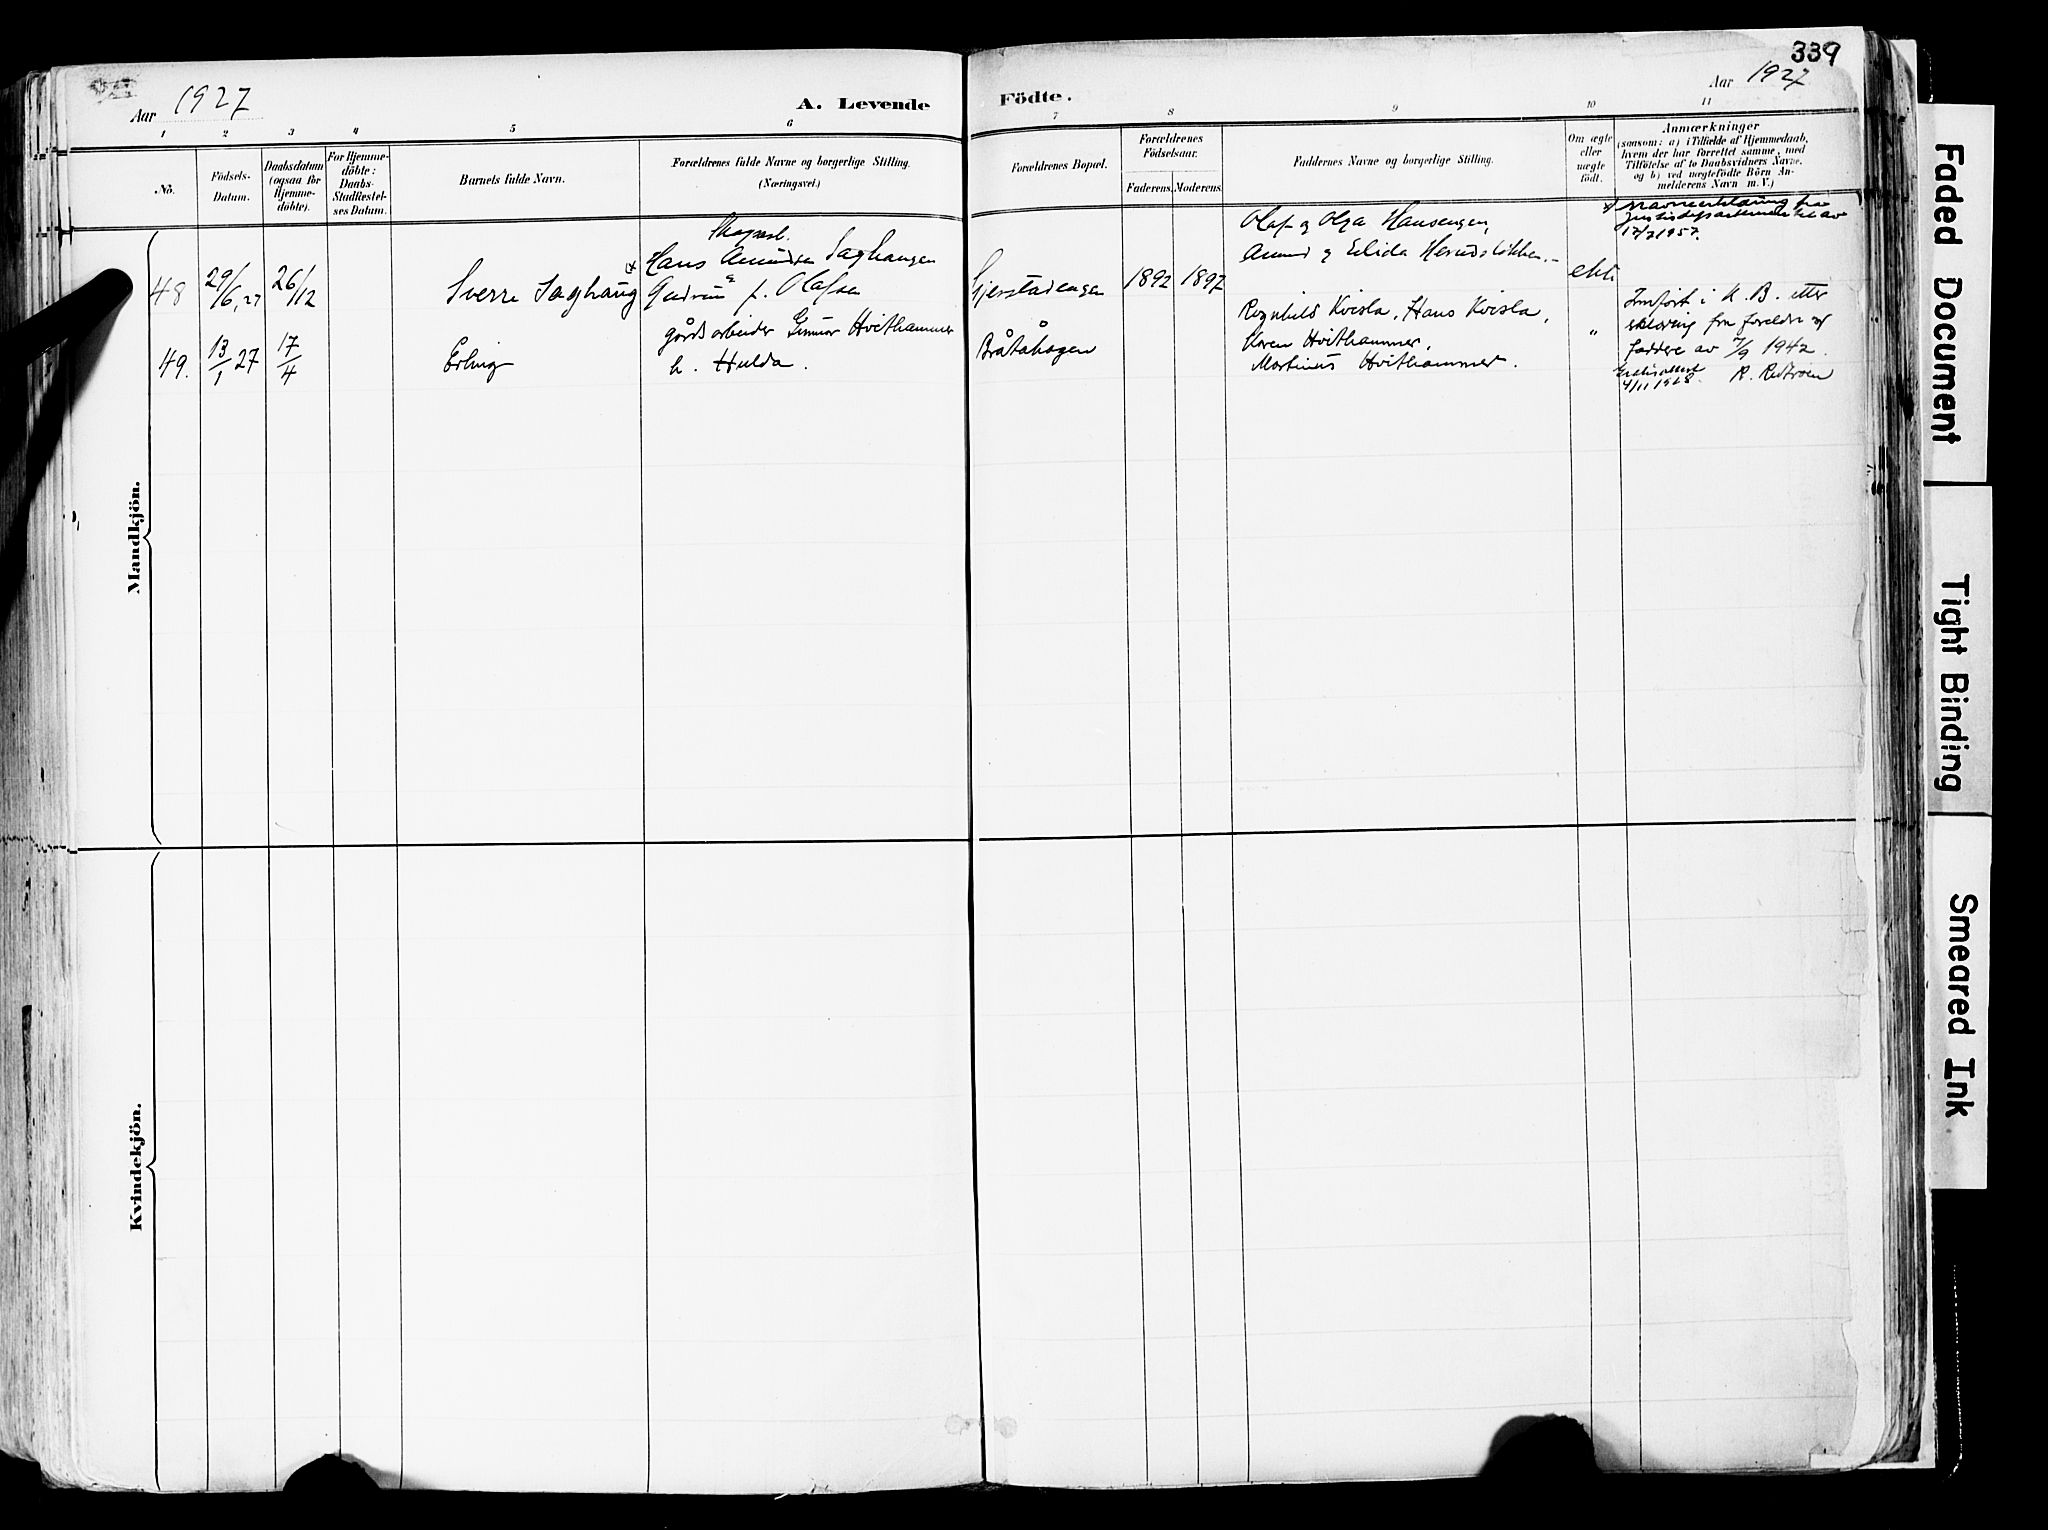 339
Aar 1927
A. Levende Födte.
Aar 1927
1 2 3 4 5 6 7 8 9 10 11
No.
Födsels-
Datum.
Daabsdatum
(ogsaa for
Hjemme-
döbte).
For Hjemme-
döbte:
Daabs-
Stadfæstel-
ses Datum.
Barnets fulde Navn.
Forældrenes fulde Navne og borgerlige Stilling.
(Næringsvei.)
Forældrenes Bopæl.
Forældrenes
Födselsaar.
Faderens. Moderens.
Faddernes Navne og borgerlige Stilling.
Om ægte
eller
uægte
födt.
Anmærkninger
(saasom: a) i Tilfælde af Hjemmedaab,
hvem der har forrettet samme, med
Tilföielse af to Daabsvidners Navne,
og b) ved uægtefödte Börn An-
melderens Navn m. V.)
Mandkjön.
48 29/6, 27 26/12
Sverre Saghaug x
Skogsarb.
Hans Amundsen Saghaugen
Gudrun f. Olafsen
Gjerstadengen
1892 1897
Olaf og Olga Hansengen,
Amund og Elida Herudsløkken.
ekte
x Navneerklæring fra
Justisdepartementet av
17/7 1957.
49. 13/1 27 17/4
Erling
gårdsarbeider Gunnar Hvithammer
h. Hulda.
Bråtåhagen
Ragnhild Kvisla, Hans Kvisla,
Karen Hvithammer,
Martinus Hvithammer.
"
Innført i K. B. etter
erklæring fra foreldre og
faddere av 7/9 1942.
R. Rudtroen
4/11 1968.
Kvindekjön.
Faded Document
Tight Binding
Smeared Ink